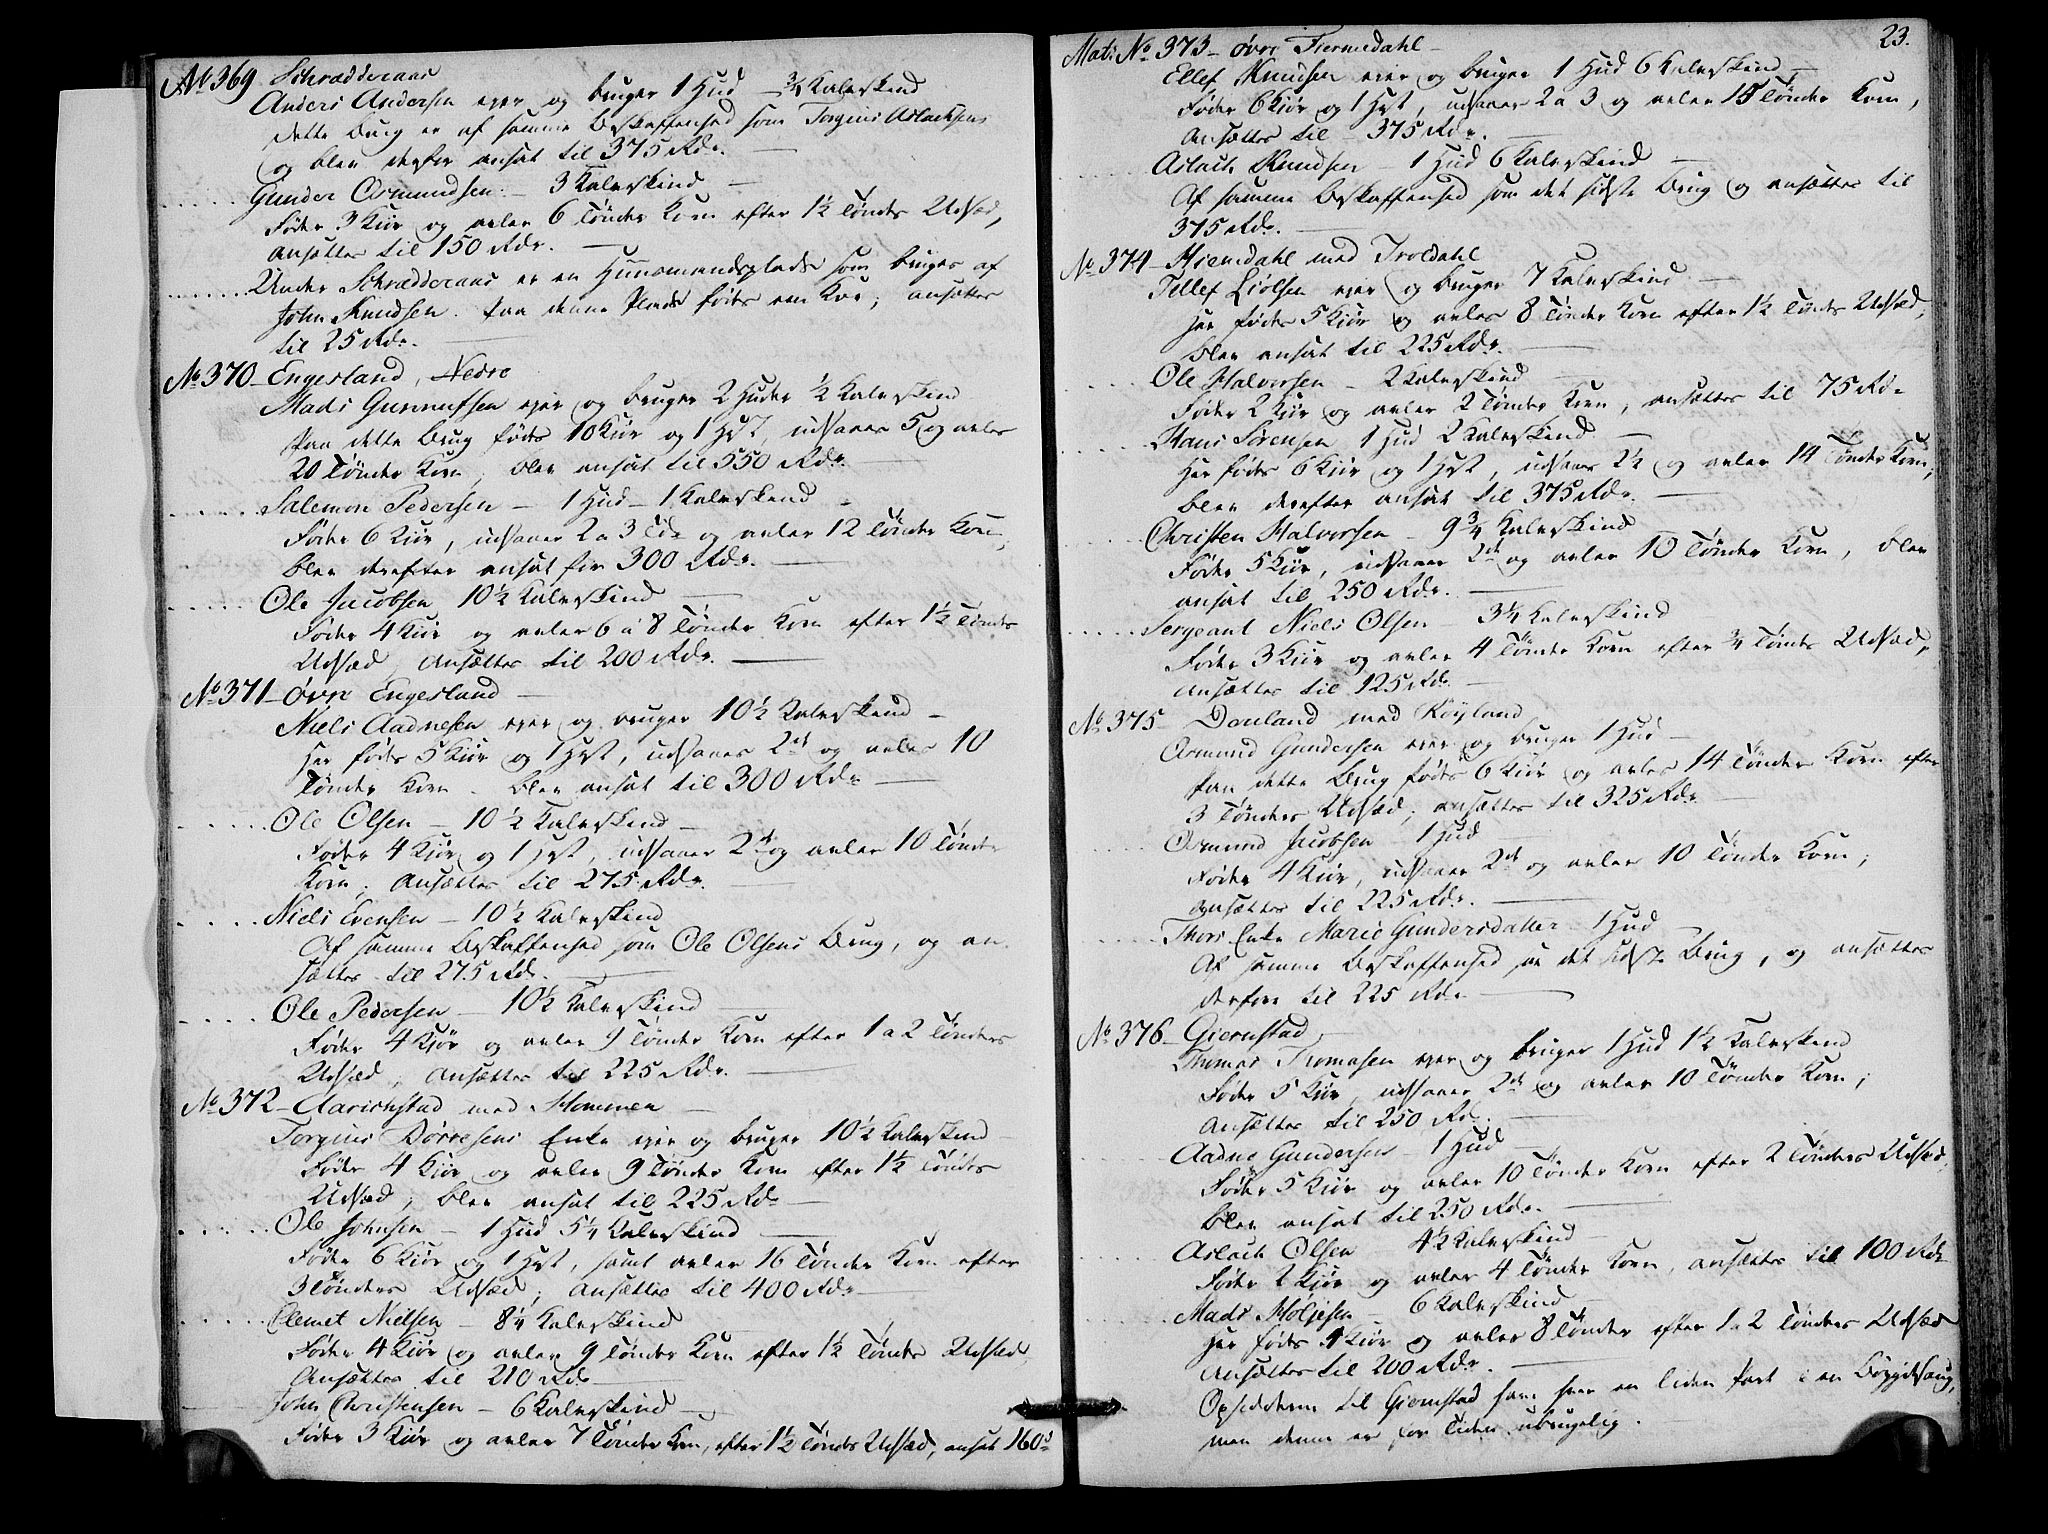 No 369 Schrædderaas
Anders Andersen ejer og bruger 1 Hud 3/4 Kalvskind
dette Brug er af samme Beskaffenhed som Torgius Aslachsens
og blev derfor ansat til 375 Rdr.
Gunder Osmundsen. – 3 Kalvskind –
føder 3 Kiør og avler 6 Tønder Korn efter 1½ Tøndes Udsæd,
ansættes til 150 Rdr.
Under Schrædderaas er en Huusmandsplads som bruges af
John Knudsen. Paa denne Plads fødes een Koe; ansættes
til 25 Rdr.
No 370 – Engesland, Nedre
Mads Gunnufsen ejer og bruger 2 Huder ½ Kalvskind
Paa dette Brug fødes 10 Kiør og 1 Hest, udsaaes 5 og avles
20 Tønder Korn, blev ansat til 550 Rdr.
Salemon Pedersen – 1 Hud – 1 Kalvskind –
Føder 6 Kiør, udsaaer 2 a 3 Tdr og avler 12 Tønder Korn,
blev derefter ansat for 300 Rdr.
Ole Jacobsen 10½ Kalvskind –
Føder 4 Kiør og avler 6 à 8 Tønder Korn efter 1½ Tøndes
Udsæd, ansættes til 200 Rdr.
No 371 – Øvre Engesland –
Niels Aadnesen ejer og bruger 10½ Kalvskind –
Her fødes 5 Kiør og 1 Hest, udsaaes 2de og avles 10
Tønder Korn – blev ansat til 300 Rdr
Ole Olsen – 10½ Kalvskind –
Føder 4 Kiør og 1 Hest, udsaaer 2de og avler 10 Tønder
Korn; ansættes til 275 Rdr.
Niels Evensen – 10½ Kalvskind
Af samme Beskaffenhed som Ole Olsens Brug, og an-
sættes til 275 Rdr.
Ole Pedersen – 10½ Kalvskind –
Føder 4 Kiør og avler 9 Tønder Korn efter 1 a 2 Tønders
Udsæd; ansættes til 225 Rdr.
No 372 – Aarichstad med Hommen –
Torgius Børresens Enke ejer og bruger 10½ Kalvskind –
Føder 4 Kiør og avler 9 Tønder Korn efter 1½ Tøndes
Udsæd, blev ansat til 225 Rdr
Ole Johnsen – 1 Hud 5¼ Kalvskind
Føder 6 Kiør og 1 Hest, samt avler 16 Tønder Korn efter
3 Tønders Udsæd; ansættes til 400 Rdr
Clemet Nielsen – 8¼ Kalvskind
Føder 4 Kiør og avler 9 Tønder Korn efter 1½ Tøndes Udsæd
Ansættes til 210 Rdr
John Christensen – 6 Kalvskind –
Føder 3 Kiør og avler 7 Tønder Korn, efter 1½ Tøndes Udsæd, ansat 160
23.
Mat: No 373 – Øvre
Ellef Knudsen ejer og bruger 1 Hud 6 Kalvskind –
Føder 6 Kiør og 1 Hest, udsaaer 2 a 3 og avler 15 Tønder Korn,
Ansættes til 375 Rdr.
Aslach Knudsen – 1 Hud 6 Kalvskind –
Af samme Beskaffenhed som det sidste Brug og ansættes til
375 Rdr.
No 374 – Hiemdahl med Troldahl
Tellef Liølsen ejer og bruger 7 Kalvskind –
Her fødes 5 Kiør og avles 8 Tønder Korn efter 1½ Tøndes Udsæd,
blev ansat til 225 Rdr.
Ole Halvorsen – 2 Kalvskind –
Føder 2 Kiør og avler 2 Tønder Korn, ansættes til 75 Rdr
Hans Sørensen 1 Hud 2 Kalvskind –
Her fødes 6 Kiør og 1 Hest, udsaaes 2½ og avles 14 Tønder Korn;
blev derefter ansat til 375 Rdr.
Christen Halvorsen – 9¾ Kalvskind
Føder 5 Kiør, udsaaer 2de og avler 10 Tønder Korn, blev
ansat til 250 Rdr.
Sergeant Niels Olsen – 3¼ Kalvskind
Føder 3 Kiør og avler 4 Tønder Korn efter ¾ Tøndes Udsæd,
ansættes til 125 Rdr. –
No 375 – Douland med Røyland
Osmund Gundersen ejer og bruger 1 Hud –
Paa dette Brug fødes 6 Kiør og avles 14 Tønder Korn efter
3 Tønders Udsæd; ansættes til 325 Rdr –
Osmund Jacobsen – 1 Hud –
Føder 4 Kiør, udsaaer 2de og avler 10 Tønder Korn;
ansættes til 225 Rdr.
Thors Enke Marie Gundersdatter 1 Hud –
Af samme Beskaffenhed som det sidste Brug, og ansættes
derfor til 225 Rdr
No 376 – Giernstad
Thomas Thomasen ejer og bruger 1 Hud 1½ Kalvskind
Føder 5 Kiør, udsaaer 2de og avler 10 Tønder Korn;
ansættes til 250 Rd. –
Aadne Gundersen – 1 Hud –
Føder 5 Kiør og avler 10 Tønder Korn efter 2 Tønders Udsæd,
blev ansat til 250 Rdr.
Aslach Olsen 4½ Kalvskind –
Føder 2 Kiør og avler 4 Tønder Korn, ansættes til 100 Rdr
Mads Holjesen – 6 Kalvskind –
Her fødes 4 Kiør og avles 8 Tønder efter 1 a 2 Tønders Udsæd
Ansættes til 200 Rdr.
Opsidderne til Giernstad have hver en liden Part i en Bøygdesaug,
men denne er for Tiden ubrugelig.